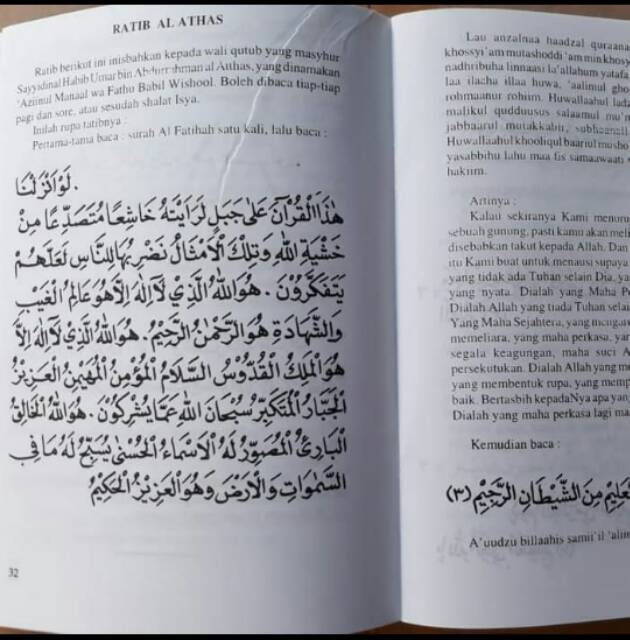 RATIB AL ATHAS
Ratib berikut ini inisbahkan kepada wali qutub yang masyhur
Sayyidinal Habib Umar bin Abdurrahman al Atthas, yang dinamakan
'Aziimul Manaal wa Fathu Babil Wishool. Boleh dibaca tiap-tiap
pagi dan sore, atau sesudah shalat Isya.
Inilah rupa tatibnya :
Pertama-tama baca : surah Al Fatihah satu kali, lalu baca :
لَوْ اَنْزَلْنَا
هٰذَا الْقُرْآنَ عَلَى جَبَلٍ لَرَاَيْتَهُ خَاشِعًا مُتَصَدِّعًا مِنْ
خَشْيَةِ اللهِ وَتِلْكَ الْاَمْثَالُ نَضْرِبُهَا لِلنَّاسِ لَعَلَّهُمْ
يَتَفَكَّرُوْنَ . هُوَ اللهُ الَّذِيْ لَآ اِلٰهَ اِلَّا هُوَ عَالِمُ الْغَيْبِ
وَالشَّهَادَةِ هُوَ الرَّحْمٰنُ الرَّحِيْمُ . هُوَ اللهُ الَّذِيْ لَآ اِلٰهَ اِلَّا
هُوَ الْمَلِكُ الْقُدُّوْسُ السَّلَامُ الْمُؤْمِنُ الْمُهَيْمِنُ الْعَزِيْزُ
الْجَبَّارُ الْمُتَكَبِّرُ سُبْحَانَ اللهِ عَمَّا يُشْرِكُوْنَ . هُوَ اللهُ الْخَالِقُ
الْبَارِئُ الْمُصَوِّرُ لَهُ الْاَسْمَاءُ الْحُسْنٰى يُسَبِّحُ لَهُ مَا فِى
السَّمٰوَاتِ وَالْاَرْضِ وَهُوَ الْعَزِيْزُ الْحَكِيْمُ
32
Lau anzalnaa haadzal quraana
khossyi'am mutashoddi'am min khosy
nadhribuha linnaasi la'allahum yatafa
laa ilacha illaa huwa, 'aalimul gho
rohmaanur rohiim. Huwallaahul ladz
malikul qudduusus salaamul mu'm
jabbaarul mutakkabir, subhaanall
Huwallaahul khooliqul baariul musho
yasabbihu lahu maa fis samaawaati
hakiim.
Artinya :
Kalau sekiranya Kami menuru
sebuah gunung, pasti kamu akan meli
disebabkan takut kepada Allah. Dan
itu Kami buat untuk menausi supaya
yang tidak ada Tuhan selain Dia, ya
yang nyata. Dialah yang Maha Pe
Dialah Allah yang tiada Tuhan selai
Yang Maha Sejahtera, yang mengare
memeliara, yang maha perkasa, yan
segala keagungan, maha suci A
persekutukan. Dialah Allah yang me
yang membentuk rupa, yang memp
baik. Bertasbih kepadaNya apa yang
Dialah yang maha perkasa lagi ma
Kemudian baca :
الْعَلِيْمِ مِنَ الشَّيْطَانِ الرَّجِيْمِ (٣)
A'uudzu billaahis samii'il 'aliim